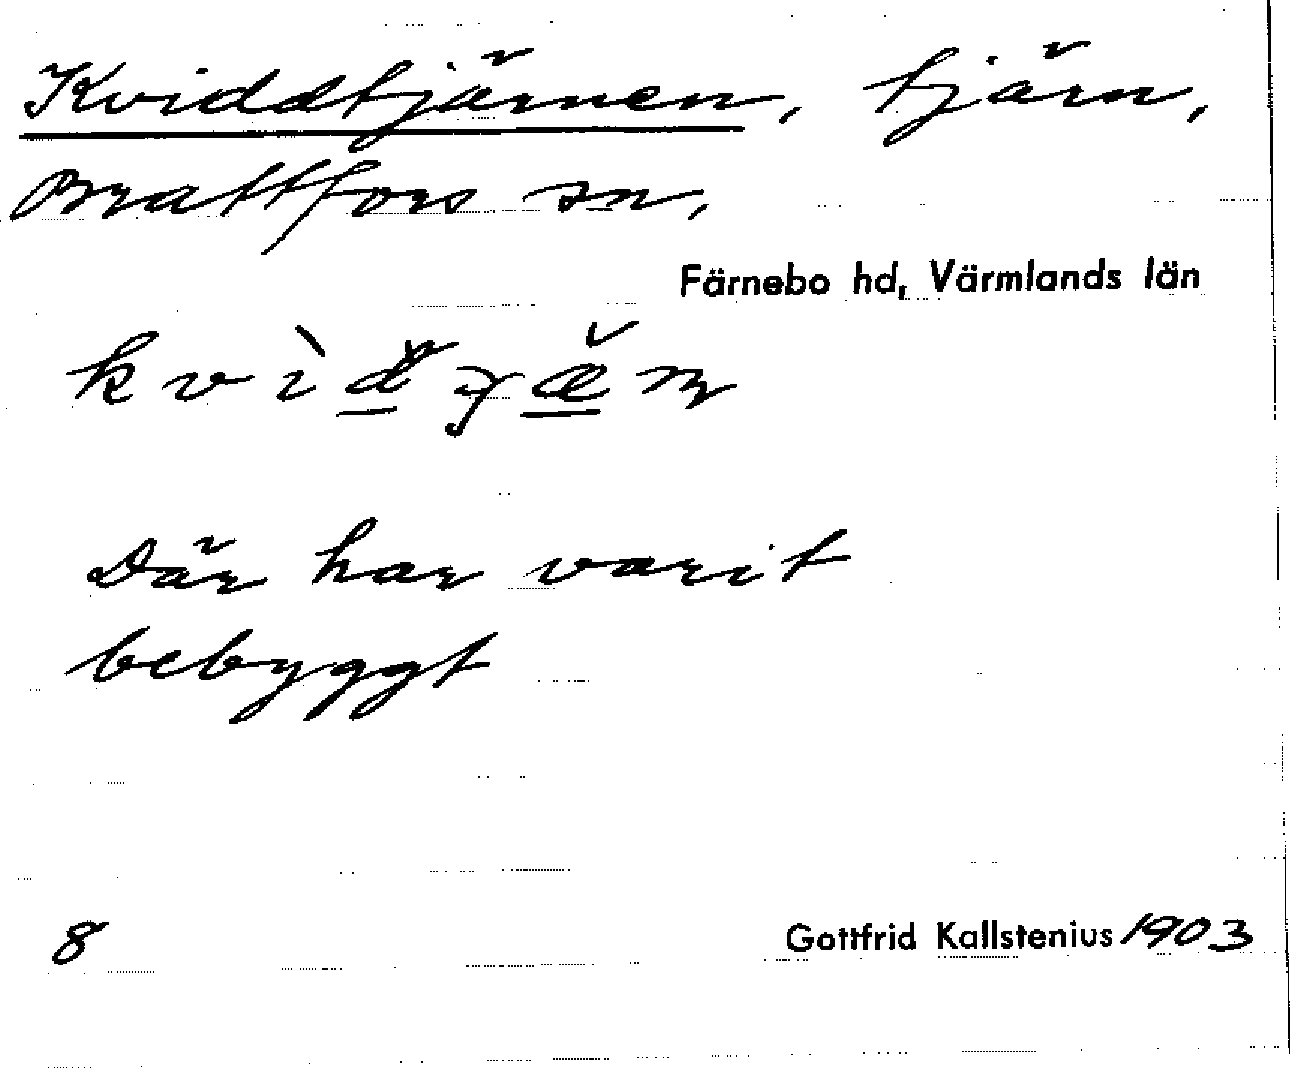 Kviddtjärnen, tjärn,
Brattfors sn,
Färnebo hd, Värmlands län
Där har varit
bebyggt
8 Gottfrid Kallstenius 1903